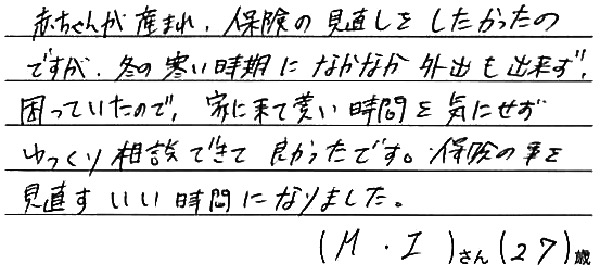 赤ちゃんが産まれ、保険の見直しをしたかったの
ですが、冬の寒い時期になかなか外出も出来ず、
困っていたので、家に来て貰い時間を気にせず
ゆっくり相談できて良かったです。保険の事を
見直すいい時間になりました。
(M・I)さん(27)歳